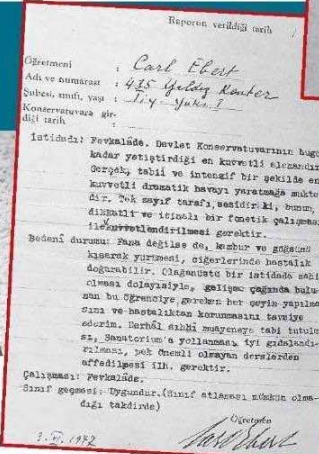 Raporun verildiği tarih
Öğretmeni : Carl Ebert
Adı ve numarası : 435 Yıldız Kenter
Şubesi, sınıfı, yaşı :
Konservatuvara gir-
diği tarih :
İstidadı: Fevkalâde. Devlet Konservatuvarının bugüne
kadar yetiştirdiği en kuvvetli elemandır.
Gerçek, tabii ve intensif bir şekilde en
kuvvetli dramatik havayı yaratmağa mukte-
dir. Tek zayıf tarafı, sesidir ki, bunun,
dikkatli ve itinalı bir fonetik çalışması
ile kuvvetlendirilmesi gerektir.
Bedenî durumu: Fena değilse de, kambur ve göğsünü
kısarak yürümesi, ciğerlerinde hastalık
doğurabilir. Olağanüstü bir istidada sahip
olması dolayısiyle, gelişme çağında bulu-
nan bu öğrenciye, gereken her şeyin yapılma-
sını ve hastalıktan korunmasını tavsiye
ederim. Derhâl sıhhî muayeneye tabi tutulma-
sı, Sanatorium'a yollanması, iyi gıdalandı-
rılması, pek önemli olmayan derslerden
affedilmesi ilh. gerektir.
Çalışması: Fevkalâde.
Sınıf geçmesi: Uygundur. (Sınıf atlaması mümkün olma-
dığı takdirde)
Öğretmen
Carl Ebert